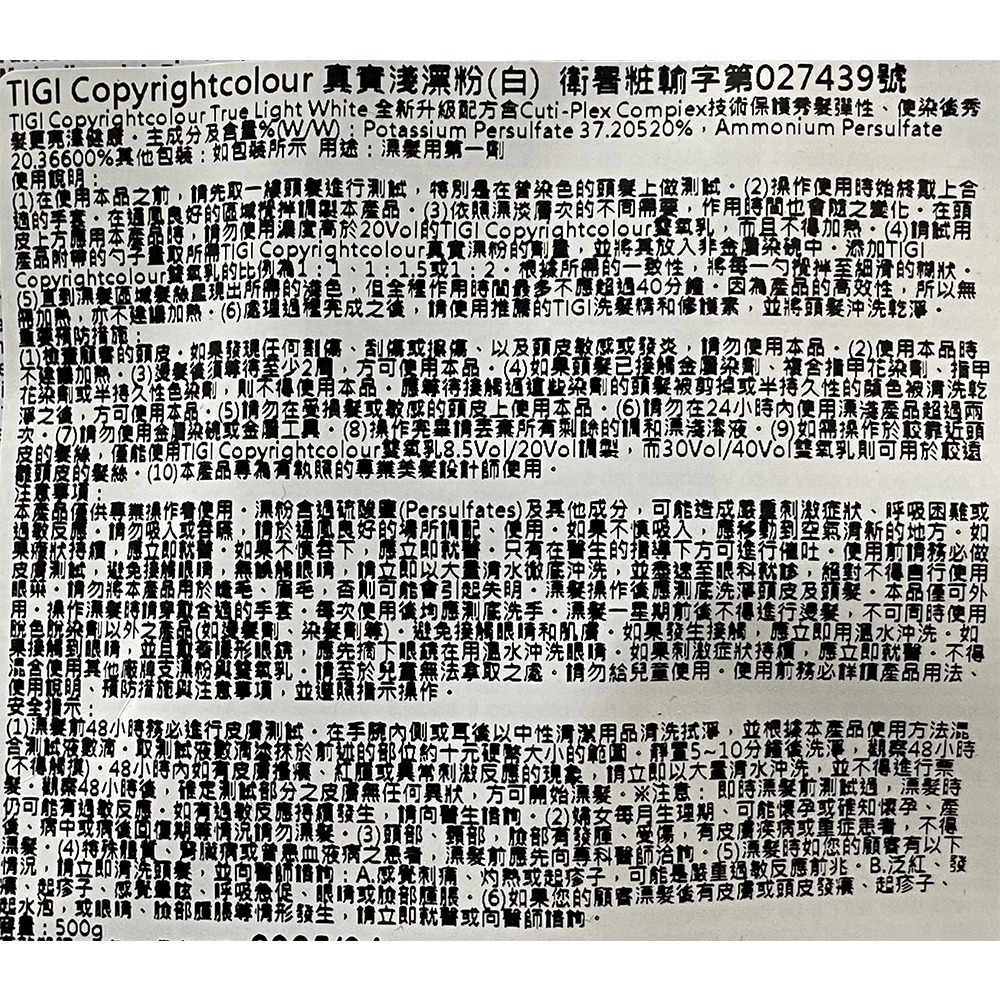 TIGI Copyrightcolour 真實淺漂粉(白) 衛署粧輸字第027439號
TIGI Copyrightcolour True Light White 全新升級配方含Cuti-Plex Compiex技術保護秀髮彈性、使染後秀
髮更亮澤健康。主成分及含量%(W/W)：Potassium Persulfate 37.20520%，Ammonium Persulfate
20.36600%其他包裝：如包裝所示 用途：漂髮用第一劑
使用說明：
(1)在使用本品之前，請先取一縷頭髮進行測試，特別是在曾染色的頭髮上做測試。(2)操作使用時始終戴上合
適的手套。在通風良好的區域攪拌調製本產品。(3)依照漂淡層次的不同需要，作用時間也會隨之變化。在頭
皮上方應用本產品時，請勿使用濃度高於20Vol的TIGI Copyrightcolour雙氧乳，而且不得加熱。(4)請試用
產品附帶的勺子量取所需TIGI Copyrightcolour真實漂粉的劑量，並將其放入非金屬染碗中。添加TIGI
Copyrightcolour雙氧乳的比例為1：1、1：1.5或1：2。根據所需的一致性，將每一勺攪拌至細滑的糊狀。
(5)直到漂髮區域髮絲呈現出所需的淺色，但全程作用時間最多不應超過40分鐘。因為產品的高效性，所以無
需加熱，亦不建議加熱。(6)處理過程完成之後，請使用推薦的TIGI洗髮精和修護素，並將頭髮沖洗乾淨。
重要預防措施：
(1)檢查顧客的頭皮。如果發現任何割傷、刮傷或擦傷、以及頭皮敏感或發炎，請勿使用本品。(2)使用本品時
不建議加熱。(3)燙髮後須等待至少2周，方可使用本品。(4)如果頭髮已接觸金屬染劑、複合指甲花染劑、指甲
花染劑或半持久性色染劑，則不得使用本品。應等待接觸過這些染劑的頭髮被剪掉或半持久性的顏色被清洗乾
淨之後，方可使用本品。(5)請勿在受損髮或敏感的頭皮上使用本品。(6)請勿在24小時內使用漂淺產品超過兩
次。(7)請勿使用金屬染碗或金屬工具。(8)操作完畢請丟棄所有剩餘的調和漂淺溶液。(9)如需操作於較靠近頭
皮的髮絲，僅能使用TIGI Copyrightcolour雙氧乳8.5Vol/20Vol調製，而30Vol/40Vol雙氧乳則可用於較遠
離頭皮的髮絲。(10)本產品專為有執照的專業美髮設計師使用。
注意事項：
本產品僅供專業操作者使用。漂粉含過硫酸鹽(Persulfates)及其他成分，可能造成嚴重刺激症狀、呼吸困難或
過敏反應。請勿吸入或吞嚥，請於通風良好的場所調配、使用。如果不慎吸入，應移動到空氣清新的地方。如
果症狀持續，應立即就醫。如果不慎吞下，應立即就醫。只有在醫生的指導下方可進行催吐。使用前請務必做
皮膚測試，避免接觸眼睛，無誤觸眼睛，請立即以大量清水徹底沖洗，並盡速至眼科就診，絕對不得自行使用
眼藥。請勿將本產品用於睫毛、眉毛，否則可能會引起失明。漂髮操作後應測底洗淨頭皮及頭髮。本品僅可外
用。操作漂髮時請穿戴合適的手套。每次使用後均應測底洗手。漂髮一星期前後不得進行燙髮，不可同時使用
脫色脫染劑以外之產品(如燙髮劑、染髮劑等)。避免接觸眼睛和肌膚。如果發生接觸，應立即用溫水沖洗。如
果接觸到眼睛，並且戴著隱形眼鏡，應先摘下眼鏡在用溫水沖洗眼睛。如果刺激症狀持續，應立即就醫。不得
混合使用其他廠牌支漂粉與雙氧乳。請至於兒童無法拿取之處。請勿給兒童使用。使用前務必詳讀產品用法、
使用說明、預防措施與注意事項，並遵照指示操作。
安全指示：
(1)漂髮前48小時務必進行皮膚測試。在手腕內側或耳後以中性清潔用品清洗拭淨，並根據本產品使用方法混
合測試液數滴。取測試液數滴塗抹於前述的部位約十元硬幣大小的範圍。靜置5~10分鐘後洗淨，觀察48小時
(不得觸摸)。48小時內如有皮膚搔癢、紅腫或異常刺激反應的現象，請立即以大量清水沖洗，並不得進行票
髮。觀察48小時後，確定測試部分之皮膚無任何異狀，方可開始漂髮。※注意：即時漂髮前測試過，漂髮時
仍可能有過敏反應。如有過敏反應持續發生，請向醫生諮詢。(2)婦女每月生理期、可能懷孕或確知懷孕、產
後、病中或病後回復期等情況請勿漂髮。(3)頭部、頸部，臉部有發腫、受傷，有皮膚疾病或重症患者，不得
漂髮。(4)特殊體質、腎臟病或曾患血液病之患者，漂髮前應先向專科醫師洽詢。(5)漂髮時如您的顧客有以下
情況，請立即清洗頭髮，並向醫師諮詢：A.感覺刺痛、灼熱或起疹子，可能是嚴重過敏反應前兆。B.泛紅、發
癢、起疹子、感覺暈眩、呼吸急促、眼睛或臉部腫脹。(6)如果您的顧客漂髮後有皮膚或頭皮發癢、起疹子、
起水泡，或眼睛、臉部腫脹等情形發生，請立即就醫或向醫師諮詢。
容量：500g